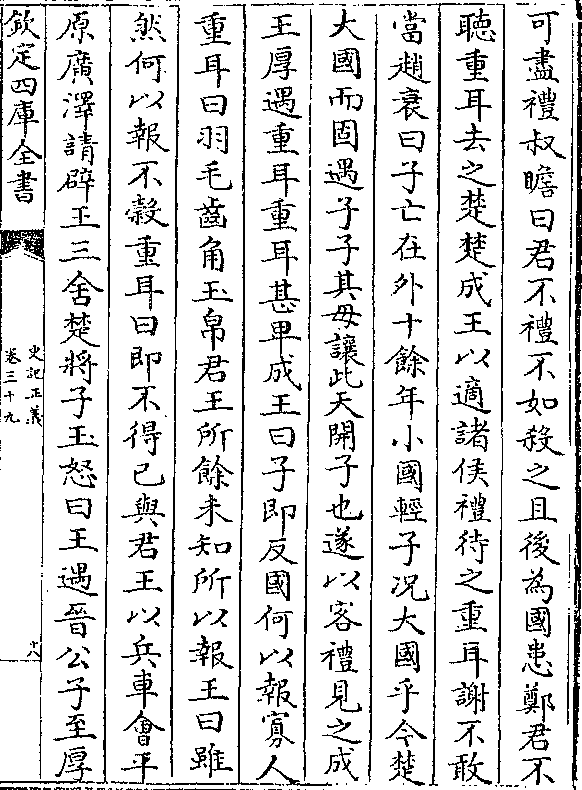 可盡禮叔瞻曰君不禮不如殺之且後為國患鄭君不
聽重耳去之楚楚成王以適諸侯禮待之重耳謝不敢
當趙衰曰子亡在外十餘年小國輕子况大國乎今楚
大國而固遇子子其毋讓此天開子也遂以客禮見之成
王厚遇重耳重耳甚卑成王曰子即反國何以報寡人
重耳曰羽毛齒角玉帛君王所餘未知所以報王曰雖
然何以報不穀重耳曰即不得已與君王以兵車會平
原廣澤請辟王三舍楚將子玉怒曰王遇晉公子至厚
欽定四庫全書
史記正義
卷三十九
十八